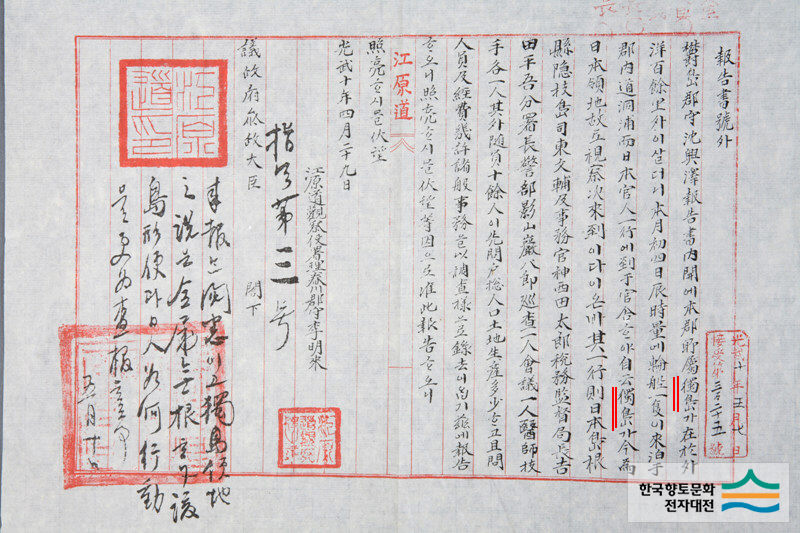 報告書號外
鬱島郡守沈興澤報告書內開에本郡所屬獨島가在於外
洋百餘里外이살더니本月初四日辰時量에輪船一隻이來泊于
郡內道洞浦而日本官人一行에到于官舍ᄒᆞ야自云獨島가今爲
日本領地故로視察次來到이다이온바其一行則日本島根
縣隱岐島司東文輔及事務官神西田太郎稅務監督局長吉
田平吾分署長警部影山巖八郎巡査一人會議一人醫師技
手各一人其外隨員十餘人이先問戶総人口土地生産多少ᄒᆞ고且問
人員及經費幾許諸般事務을以調査樣으로錄去이옵기玆에報告
ᄒᆞ오니照亮ᄒᆞ시믈伏望等因으로准此報告ᄒᆞ오니
照亮ᄒᆞ시믈伏望
光武十年四月二十九日
江原道觀察使署理春川郡守李明來
議政府參政大臣 閣下
指令第三号
來報는閱悉이고獨島領地
之說은全屬無根하나該
島形便과日人如何行動
을更爲査報할事
五月二十日
江原道
光武十年五月七日
接受第三百二十五號
江原道印
한국향토문화
전자대전